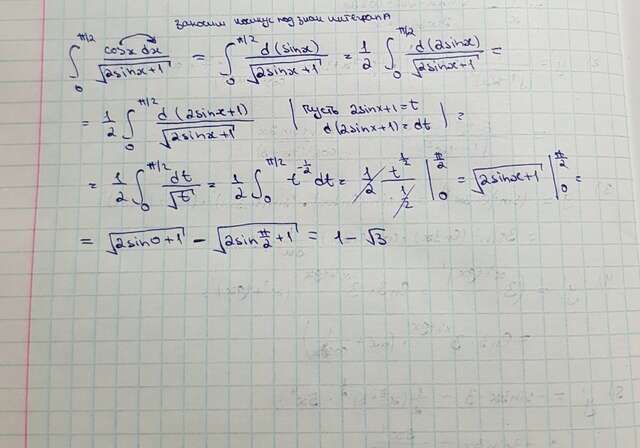 заносим косинус под знак интеграла
∫₀^{π/2} cosx dx / √(2sinx+1) = ∫₀^{π/2} d(sinx) / √(2sinx+1) = 1/2 ∫₀^{π/2} d(2sinx) / √(2sinx+1) =
= 1/2 ∫₀^{π/2} d(2sinx+1) / √(2sinx+1) | Пусть 2sinx+1=t d(2sinx+1)=dt | =
= 1/2 ∫₀^{π/2} dt/√t = 1/2 ∫₀^{π/2} t^{-1/2} dt = 1/2 t^{1/2} / (1/2) |₀^{π/2} = √(2sinx+1) |₀^{π/2} =
= √(2sin0+1) - √(2sin π/2 +1) = 1-√3